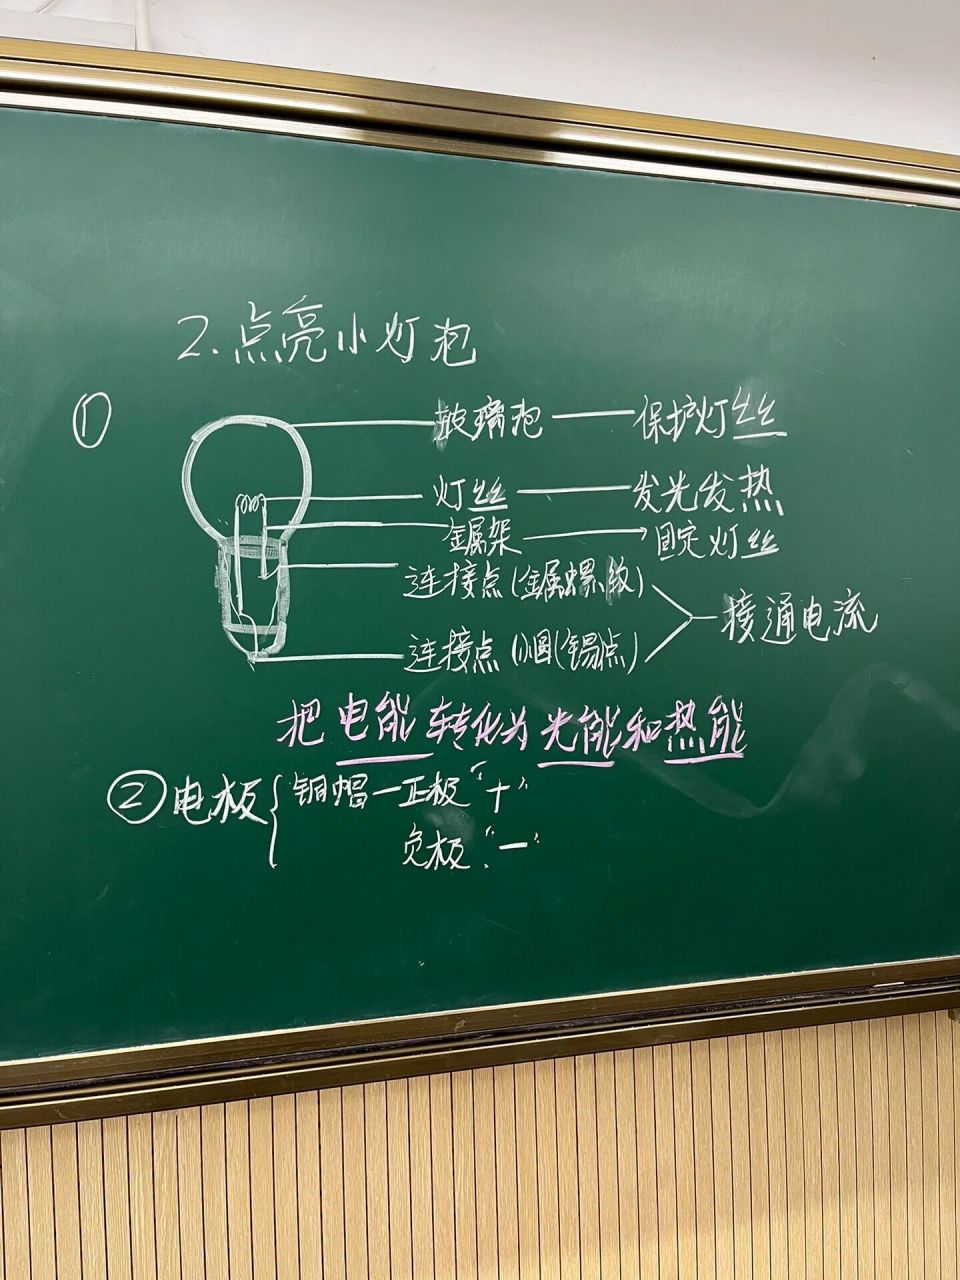 2.点亮小灯泡
① 玻璃泡——保护灯丝
灯丝——发光发热
金属架→固定灯丝
连接点(金属螺纹)
接通电流
连接点 (锡点)
把电能转化为光能和热能
②电极{铜帽一正极“+”
负极“一”